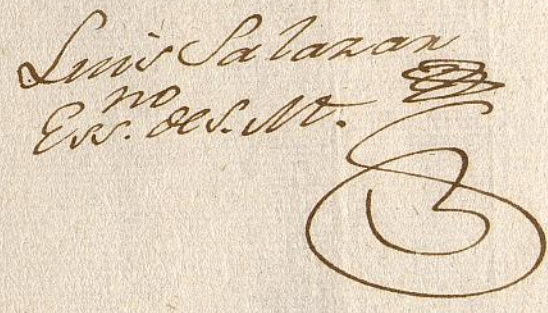 Luis Salazar
Ess.no de S. M.